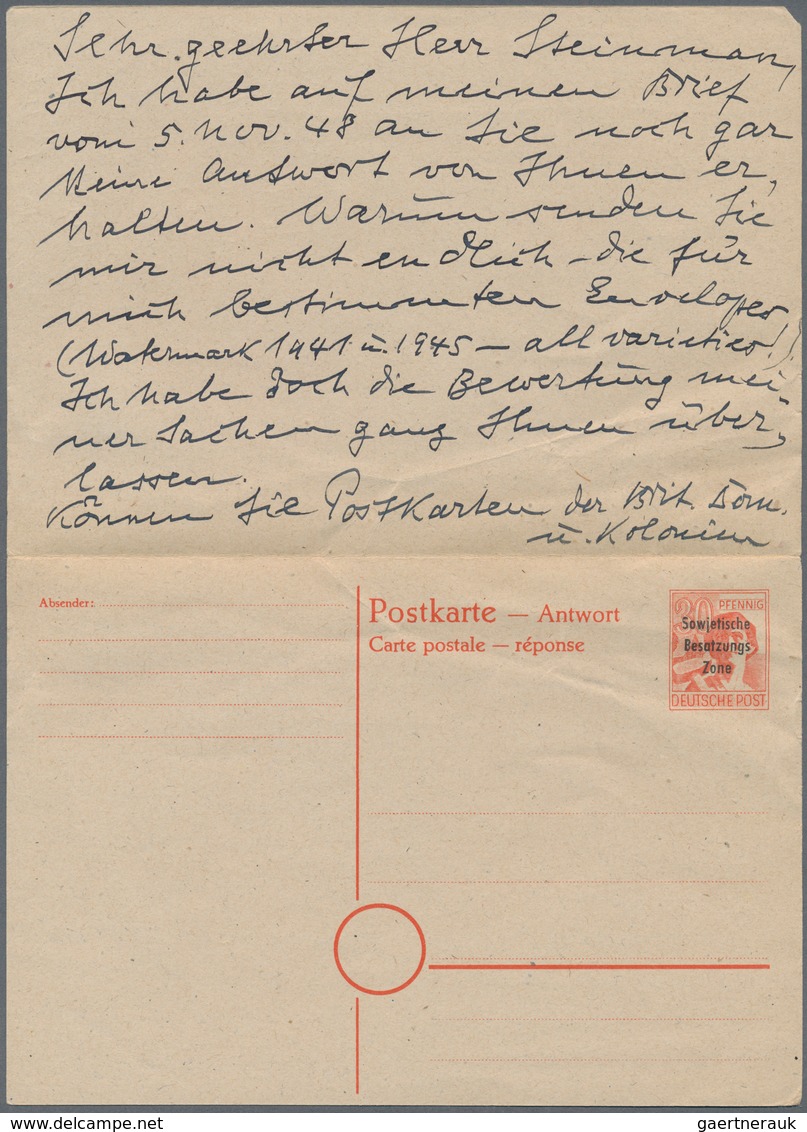 Sehr geehrter Herr Steinman,
Ich habe auf meinen Brief
vom 5. Nov. 48 an Sie noch gar
keine Antwort von Ihnen er-
halten. Warum senden Sie
mir nicht endlich - die für
mich bestimmten Envelopes
(Watermark 1941 u. 1945 - all varieties!)
Ich habe doch die Bewertung mei-
ner Sachen ganz Ihnen über-
lassen.
Können Sie Postkarten der Brit. Dom.
u. Kolonien
Absender:
Postkarte — Antwort
Carte postale — réponse
30 PFENNIG
Sowjetische
Besatzungs
Zone
DEUTSCHE POST
www.delcampe.net
gaertnerauk